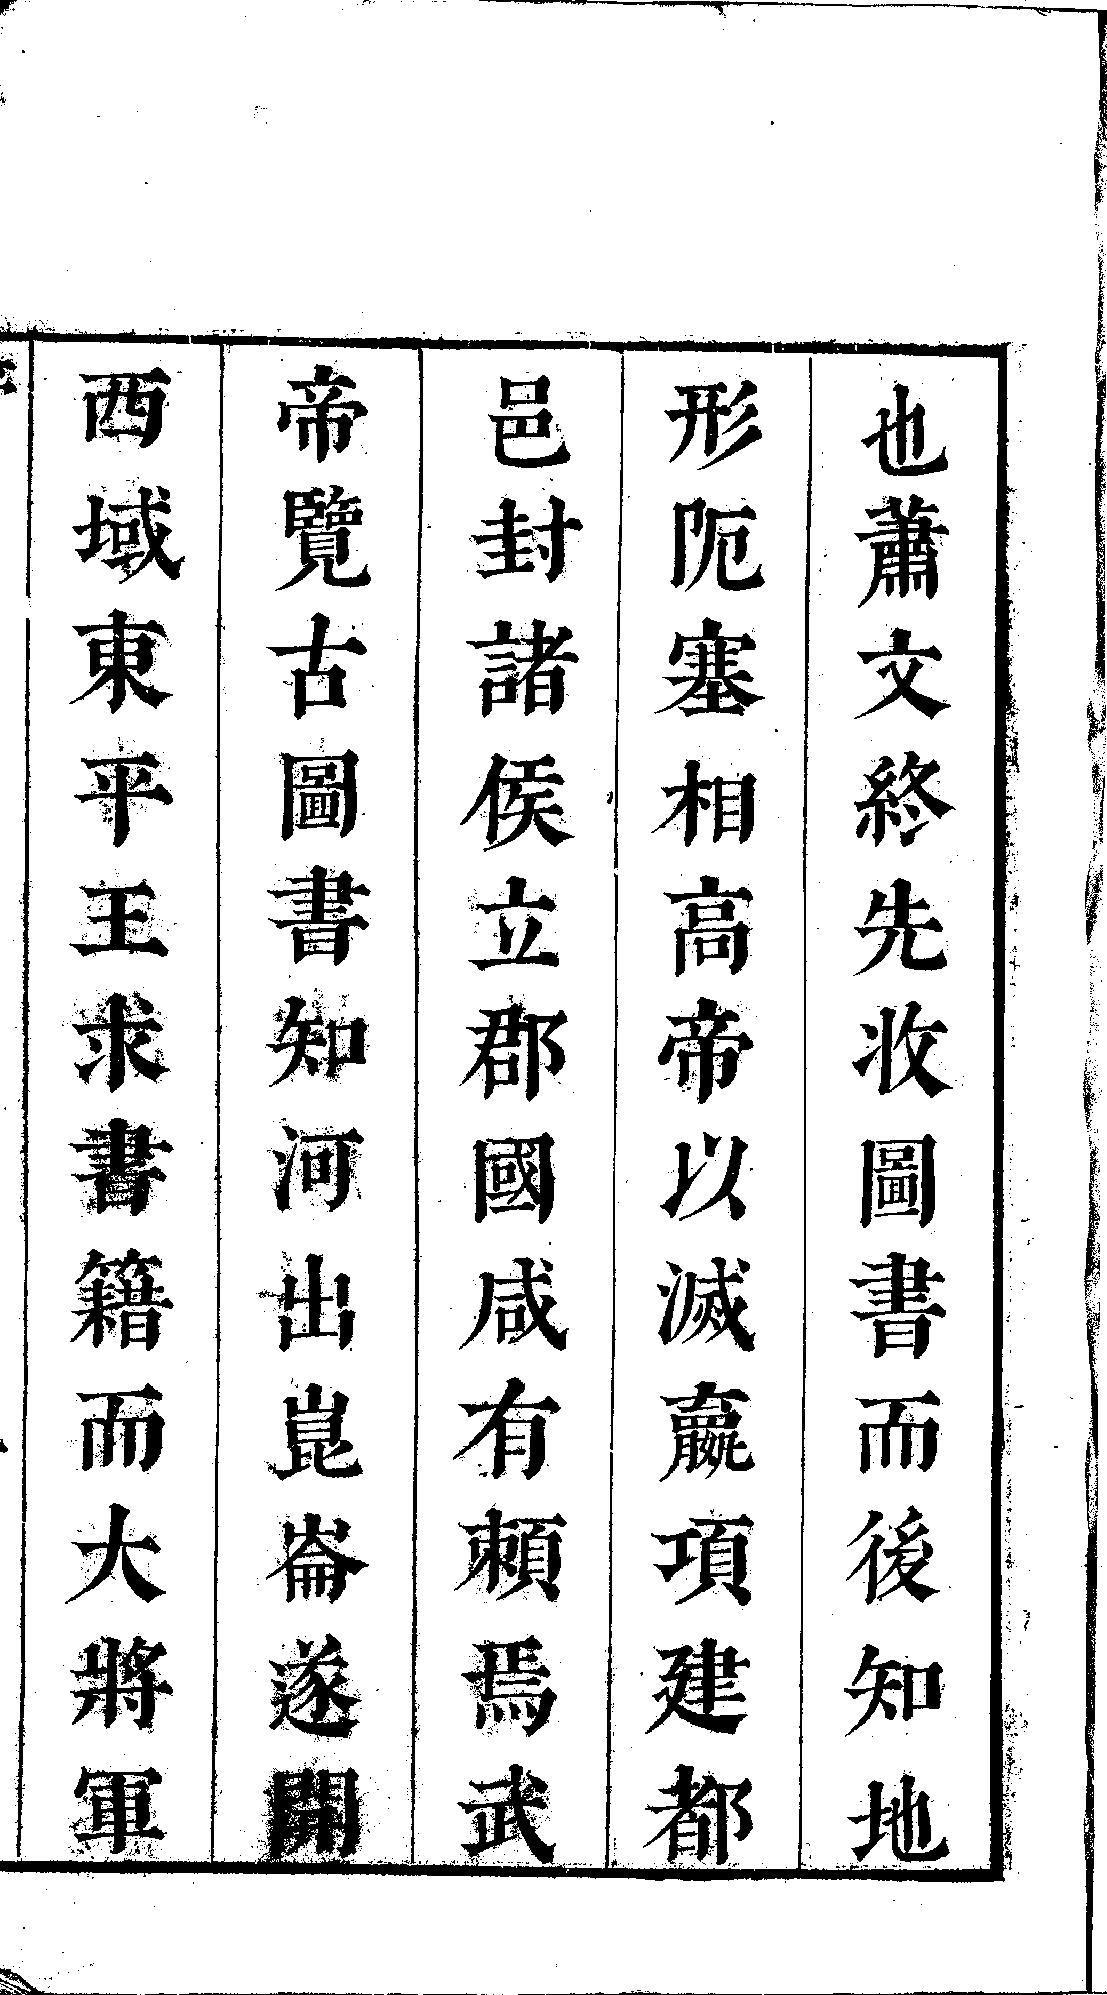 也蕭文終先收圖書而後知地
形阨塞相高帝以滅嬴項建都
邑封諸侯立郡國咸有頼焉武
帝覽古圖書知河出崑崙遂開
西域東平王求書籍而大將軍